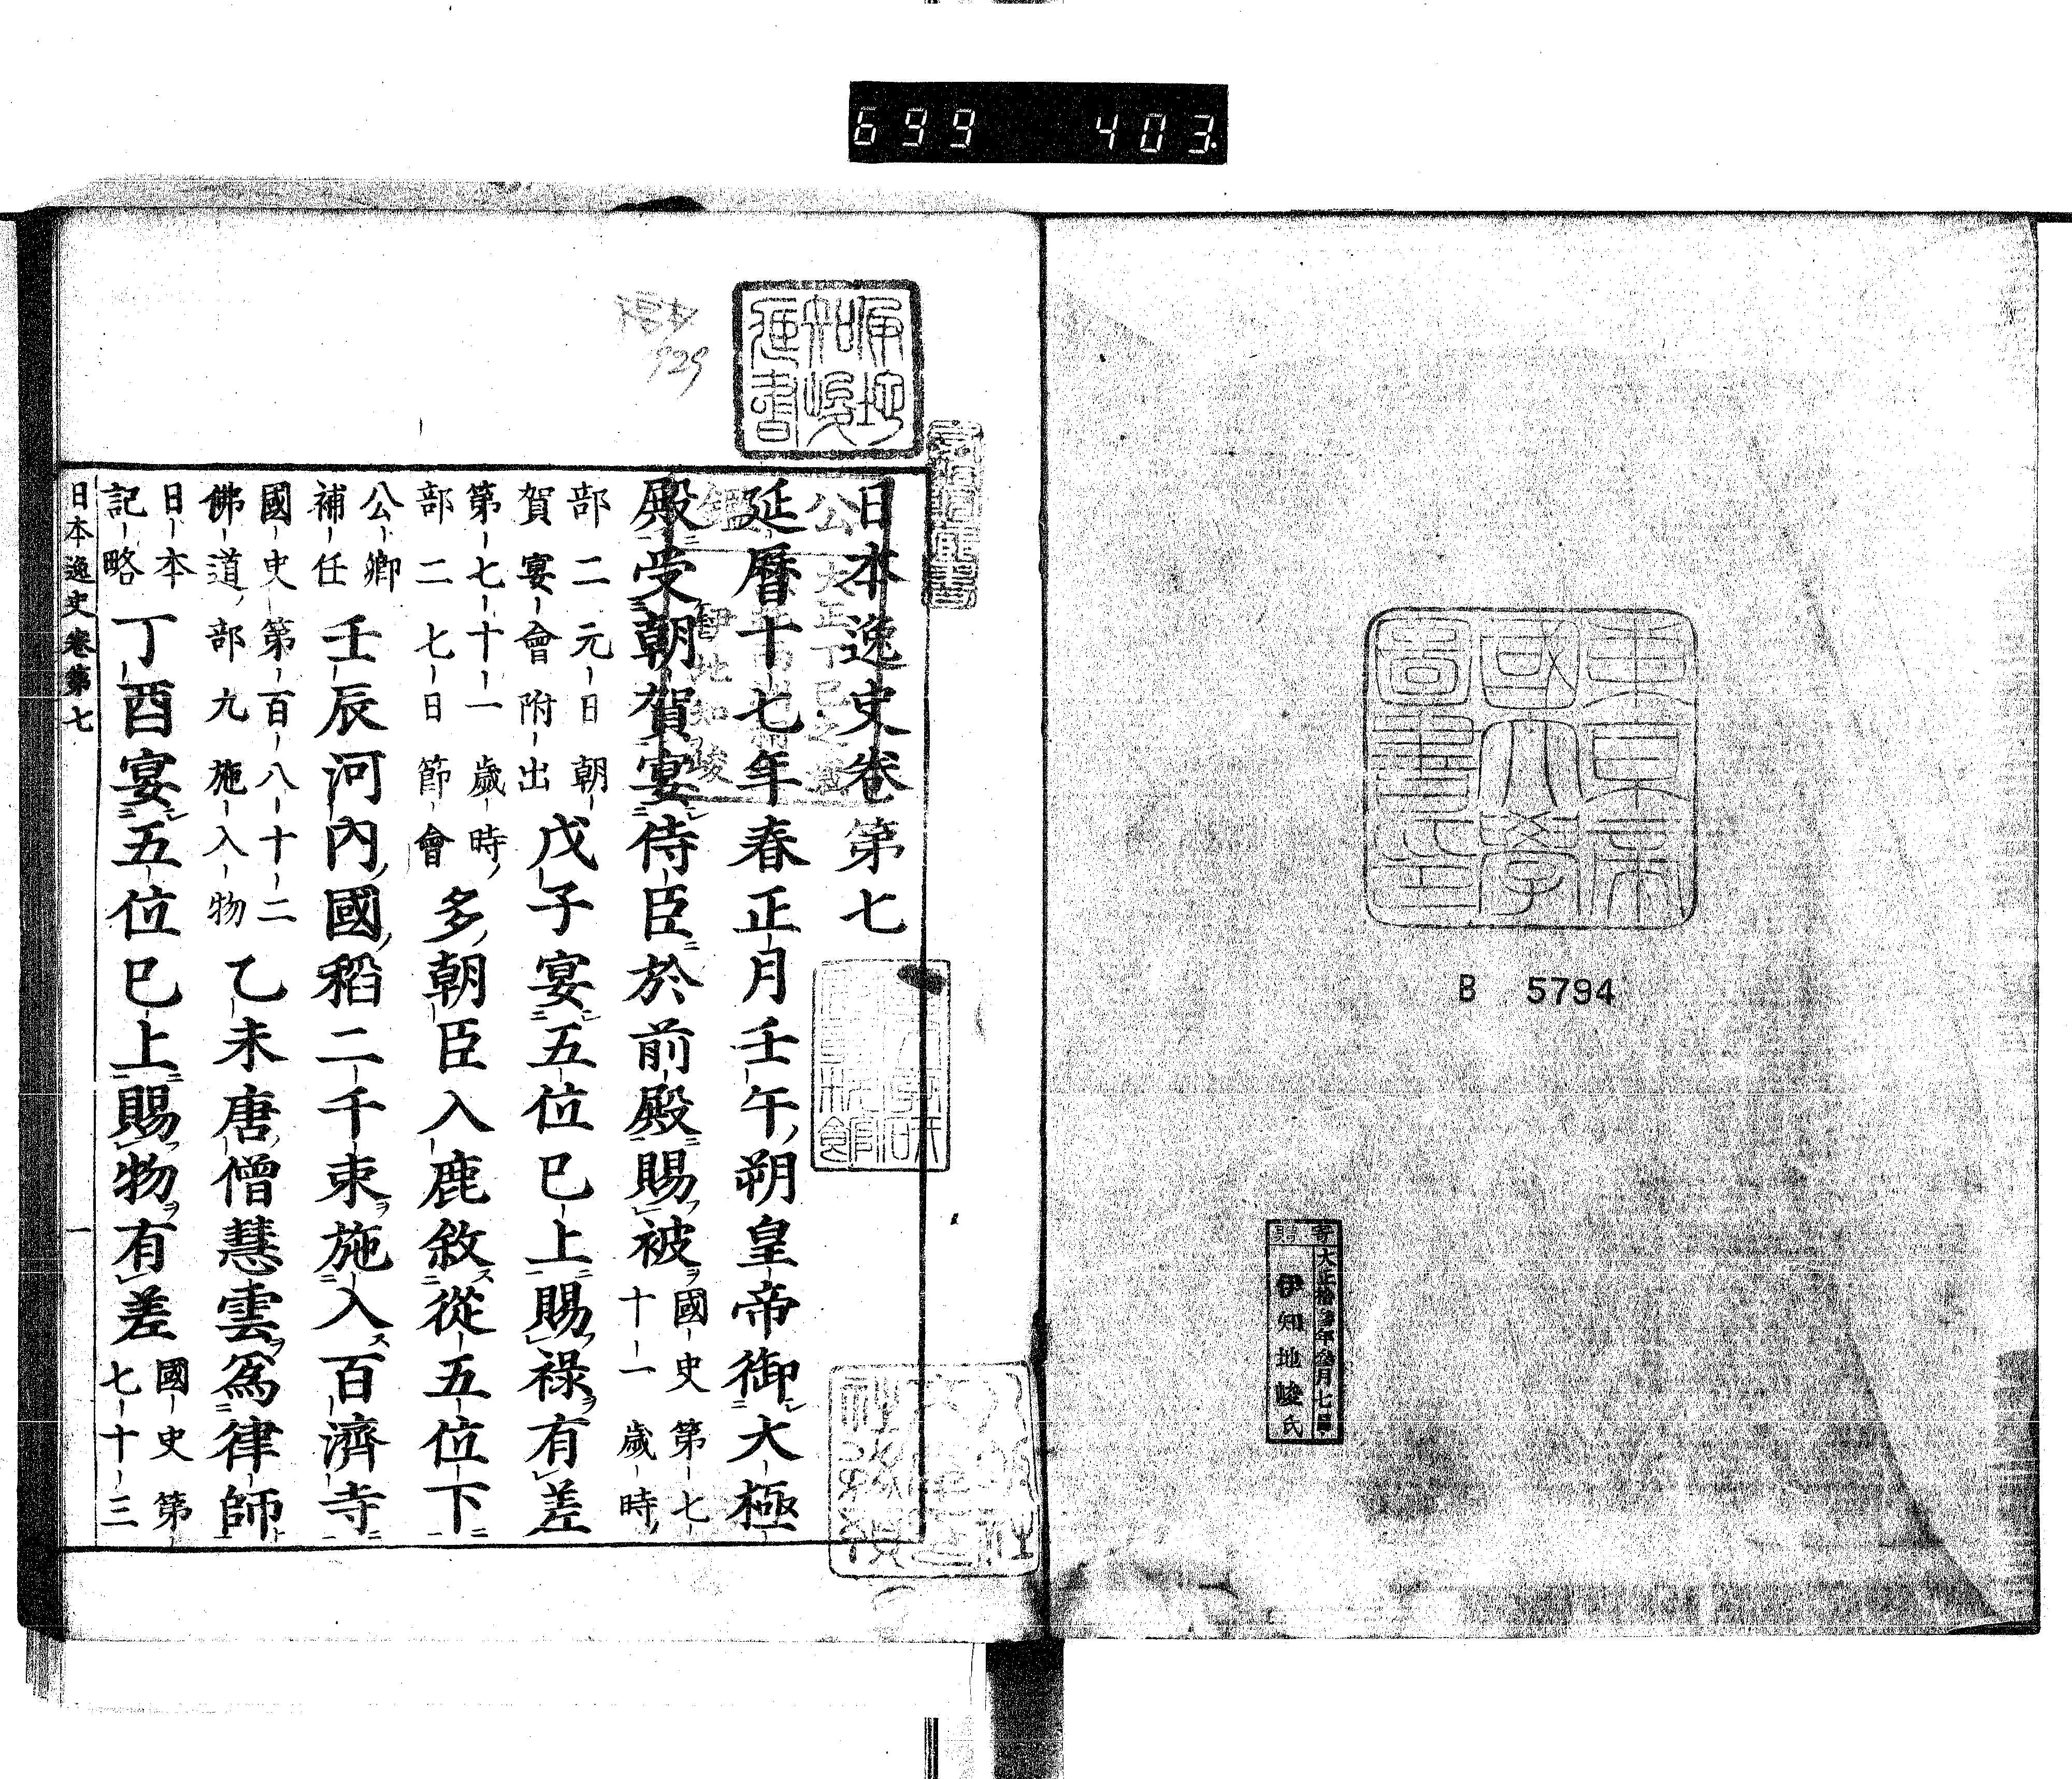 699 403
東京帝
國大學
圖書印
B 5794
寄贈
伊知地峻氏
日本逸史卷第七
延曆十七年春正月壬午朔皇帝御大極
殿受朝賀宴侍臣於前殿賜被國史第七
十一歲時
部二元日朝
賀宴會附出戊子宴五位已上賜祿有差
第七十一歲時
部二七日節會多朝臣入鹿敘從五位下
公卿
補任壬辰河內國稻二千束施入百濟寺
國史第百八十二
佛道部九施入物乙未唐僧慧雲爲律師
日本
記略丁酉宴五位已上賜物有差國史第
七十三
日本逸史卷第七
一
929